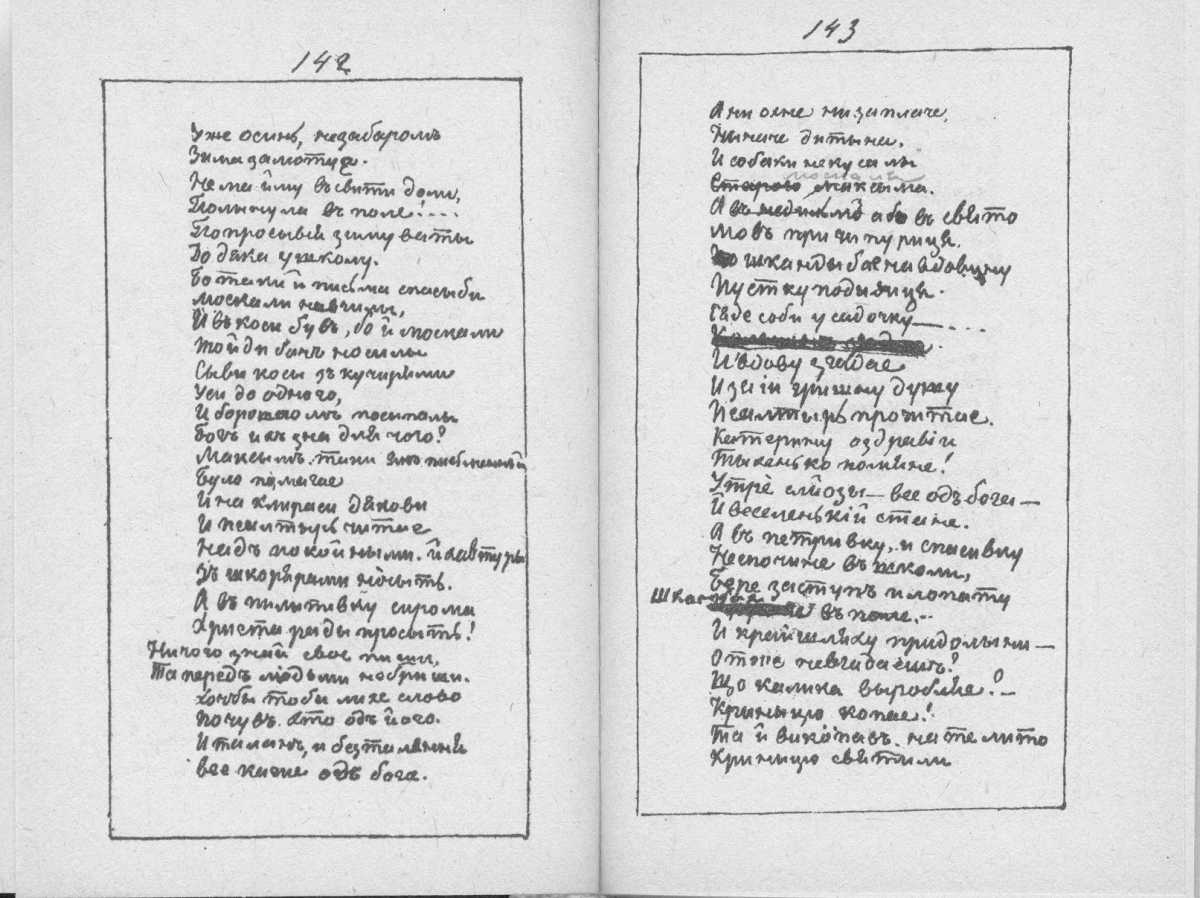 142
Уже осинь, незабаромъ
Зима замотуе.
Нема йму въ свити доли,
Полынула въ поле!....
Попросывсій зимувaты
До дяка у школу.
Бо таки й письма спасыби
москали навчили,
Й въ коси бувъ, бо й москали
тойди банъ носилы
Сыви косы зъ кучирями
Уси до одного,
И борошномъ посыпалы
Богъ ихъ зна для чого?
Максымъ таки письменный
Було помагае
Й на клираси дякови
И псалтырь читае
Надъ покойными. й кавтуры
Зъ школярами носыть.
А въ пилипивку сирома
Христа рады просыть!
Ничого знай свое пиши,
Та передъ людьми небриши.
хочбы тоби лихе слово
почувъ хто одъ його.
И таланъ, и безталання
все каже одъ бога.
143
А ни охне ни заплаче,
Ныначе дитына.
И собаки не кусалы
москаля
Старого максыма.
А въ недилю або въ свято
мовъ причипурыця.
шкандыбае на вдовыну
Пустку подывиця.
Сяде соби у садочку—....
И вдову згадае
И за іи гришну душу
Псалтырь прочитае.
Катерыну оздравіи
Тыхенько помяне!
Утре слёзы — все одъ бога —
Й веселенькій стане.
А въ петривку, и спасивку
Неспочине въ школи,
Бере заступъ и лопату
Шкандыба въ поле...
И край шляху придолыни —
Отже невгадаешъ!
Що калика выробляе? —
Крыныцю копае!
Та й викопавъ. на те лито
Криныцю святили